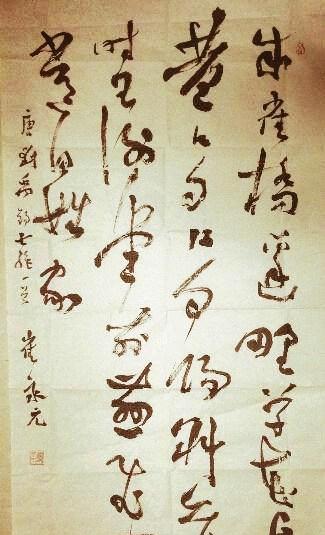 朱雀橋邊野草花
巷口夕陽斜
時王謝堂前燕飛
常百姓家
唐劉禹錫七絕一首
崔永元